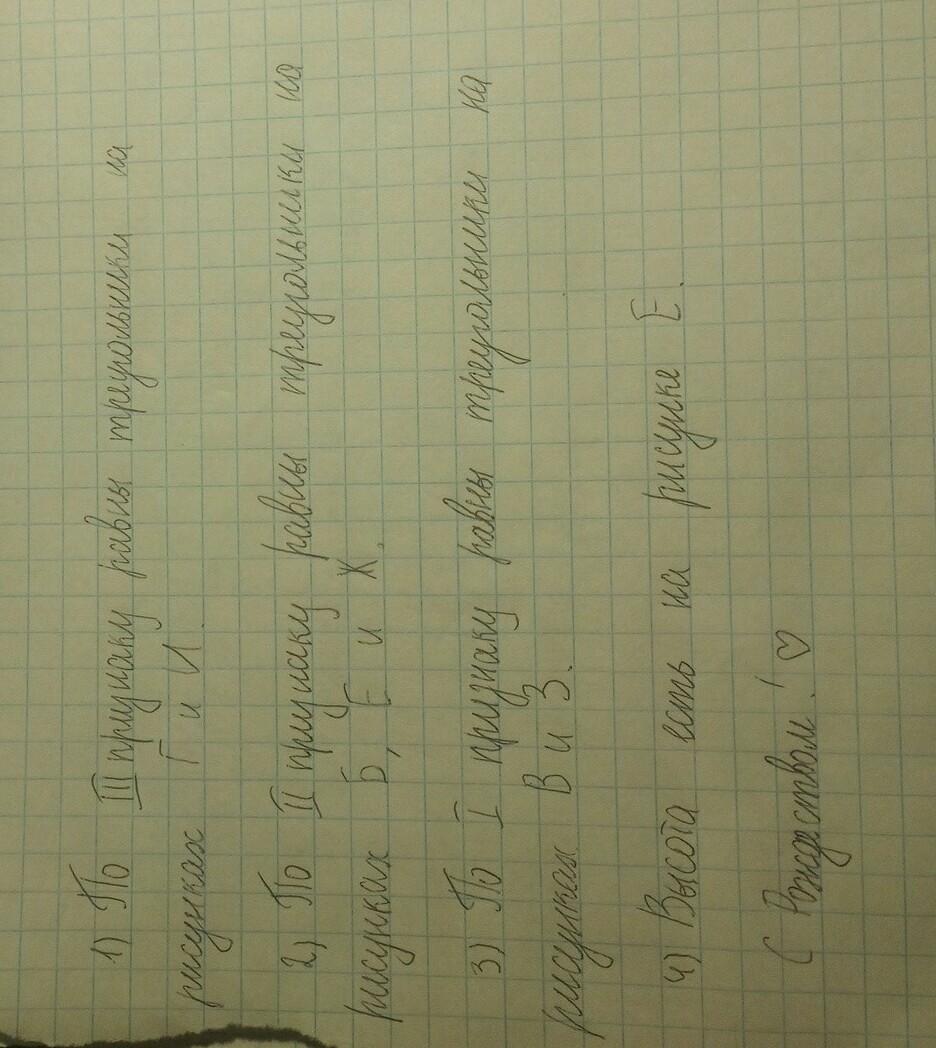 1) По III признаку равны треугольники на
рисунках Г и И.
2) По II признаку равны треугольники на
рисунках Б, Е и Ж.
3) По I признаку равны треугольники на
рисунках В и З.
4) Высота есть на рисунке Е.
С Рождеством! ♡